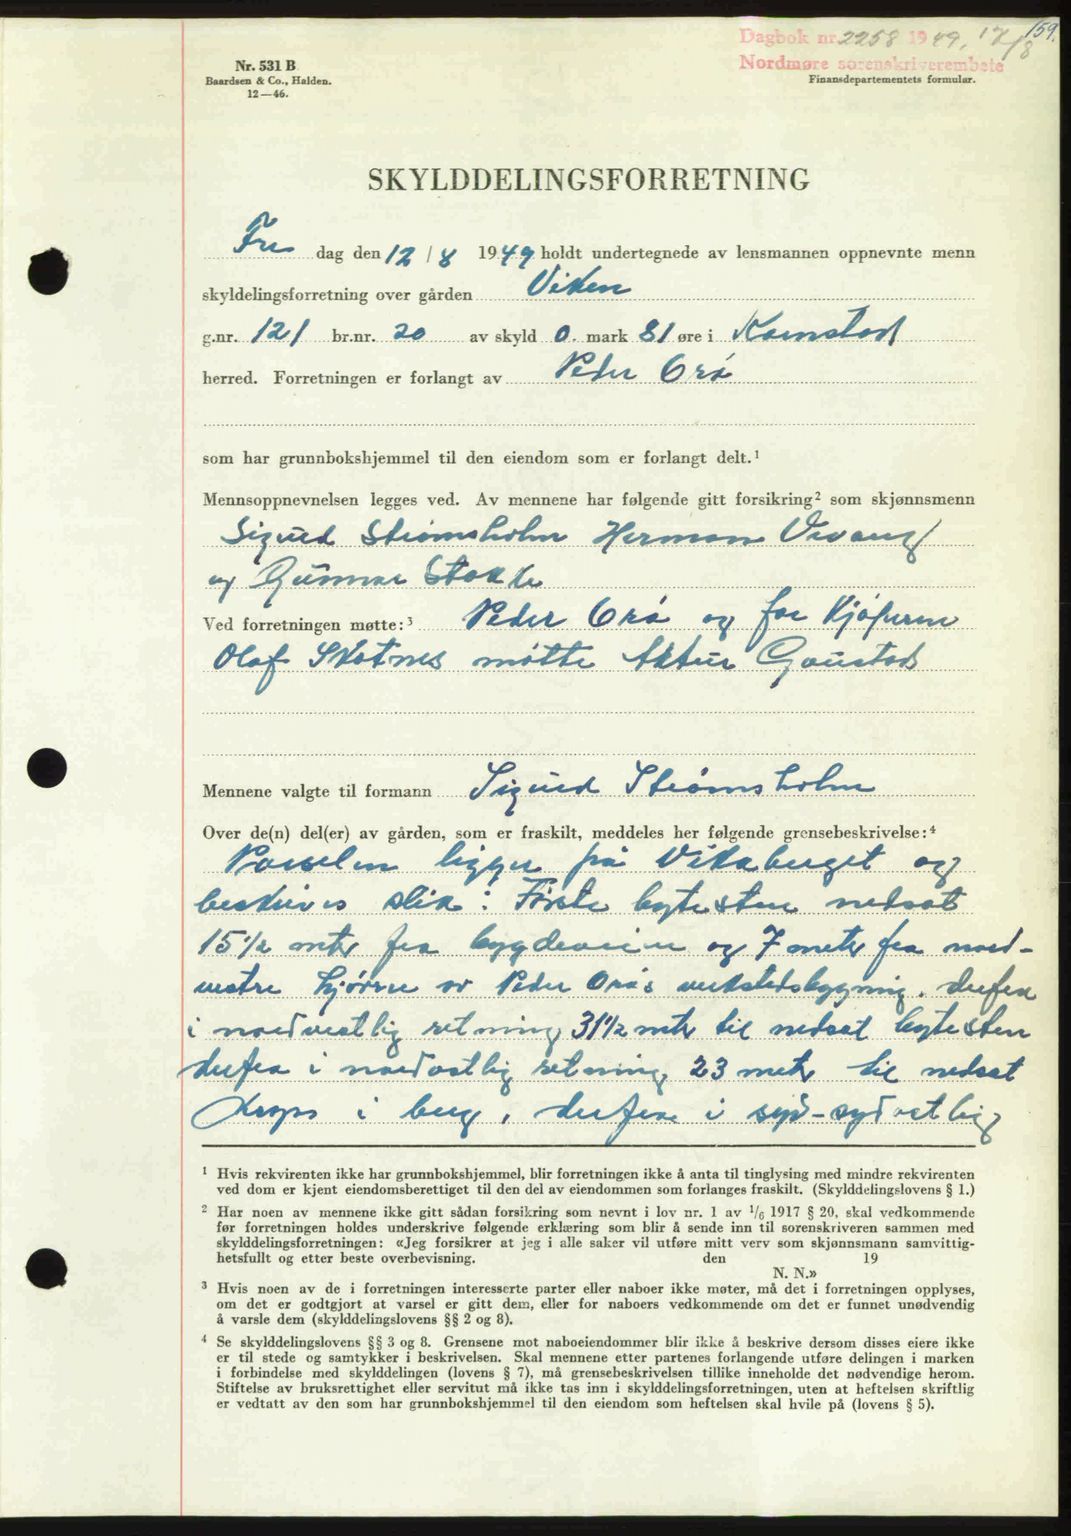 159.
Dagbok nr. 2258 1949, 17/8
Nordmøre sorenskriverembete
Nr. 531 B
Baardsen & Co., Halden.
12—46.
Finansdepartementets formular.
SKYLDDELINGSFORRETNING
Fre dag den 12/8 1949 holdt undertegnede av lensmannen oppnevnte menn
skyldelingsforretning over gården Viken
g.nr. 121 br.nr. 20 av skyld 0. mark 81 øre i Kornstad
herred. Forretningen er forlangt av Peder Orø
som har grunnbokshjemmel til den eiendom som er forlangt delt.¹
Mennsoppnevnelsen legges ved. Av mennene har følgende gitt forsikring² som skjønnsmenn
Sigurd Strømsholm Herman Vevang
og Gunnar Stokke
Ved forretningen møtte:³ Peder Orø og for kjøperne
Olaf Skotnes møtte Aktur Gaustad
Mennene valgte til formann Sigurd Strømsholm
Over de(n) del(er) av gården, som er fraskilt, meddeles her følgende grensebeskrivelse:⁴
Parselen ligger på Vikaberget og
beskrives slik: Første bytesten nedsat
15½ metr fra bygdeveien og 7 metr fra nord-
vestre hjørne av Peder Orøs verkstedsbygning. derfra
i nordvestlig retning 31½ metr til nedsat bytesten
derfra i nordostlig retning 23 metr til nedsat
kryss i berg, derfra i syd-sydostlig
¹ Hvis rekvirenten ikke har grunnbokshjemmel, blir forretningen ikke å anta til tinglysing med mindre rekvirenten
ved dom er kjent eiendomsberettiget til den del av eiendommen som forlanges fraskilt. (Skylddelingslovens § 1.)
² Har noen av mennene ikke gitt sådan forsikring som nevnt i lov nr. 1 av 1/6 1917 § 20, skal vedkommende
før forretningen holdes underskrive følgende erklæring som blir å sende inn til sorenskriveren sammen med
skylddelingsforretningen: «Jeg forsikrer at jeg i alle saker vil utføre mitt verv som skjønnsmann samvittig-
hetsfullt og etter beste overbevisning. den 19
N. N.»
³ Hvis noen av de i forretningen interesserte parter eller naboer ikke møter, må det i forretningen opplyses,
om det er godtgjort at varsel er gitt dem, eller for naboers vedkommende om det er funnet unødvendig
å varsle dem (skylddelingslovens §§ 2 og 8).
⁴ Se skylddelingslovens §§ 3 og 8. Grensene mot naboeiendommer blir ikke å beskrive dersom disses eiere ikke
er til stede og samtykker i beskrivelsen. Skal mennene etter partenes forlangende utføre delingen i marken
i forbindelse med skylddelingen (lovens § 7), må grensebeskrivelsen tillike inneholde det nødvendige herom.
Stiftelse av bruksrettighet eller servitut må ikke tas inn i skylddelingsforretningen, uten at heftelsen skriftlig
er vedtatt av den som har grunnbokshjemmel til den eiendom som heftelsen skal hvile på (lovens § 5).